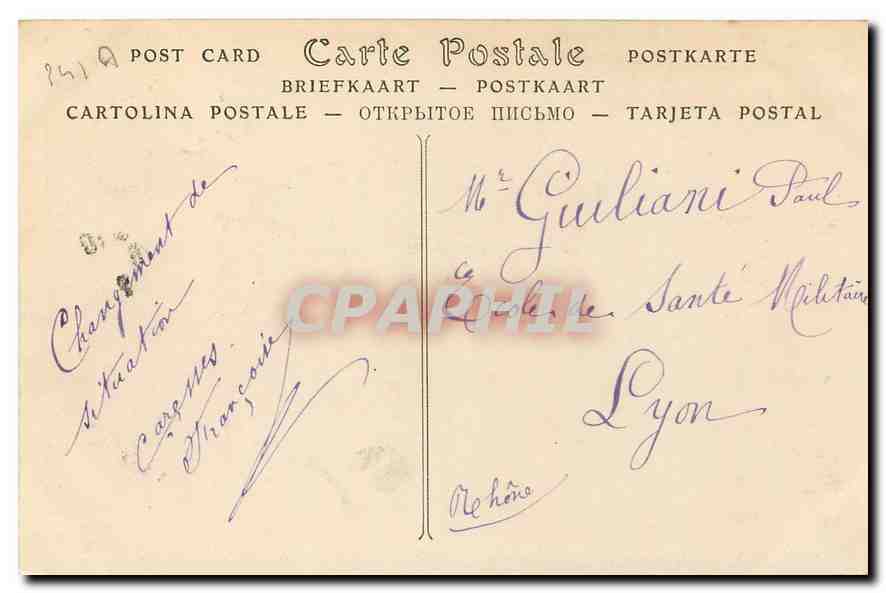 POST CARD Carte Postale POSTKARTE
BRIEFKAART — POSTKAART
CARTOLINA POSTALE — ОТКРЫТОЕ ПИСЬМО — TARJETA POSTAL
Changement de
situation
Caresses.
Françoise
Mr Giuliani Paul
Ecole de Santé Militaire
Lyon
Rhône
CPAPHIL